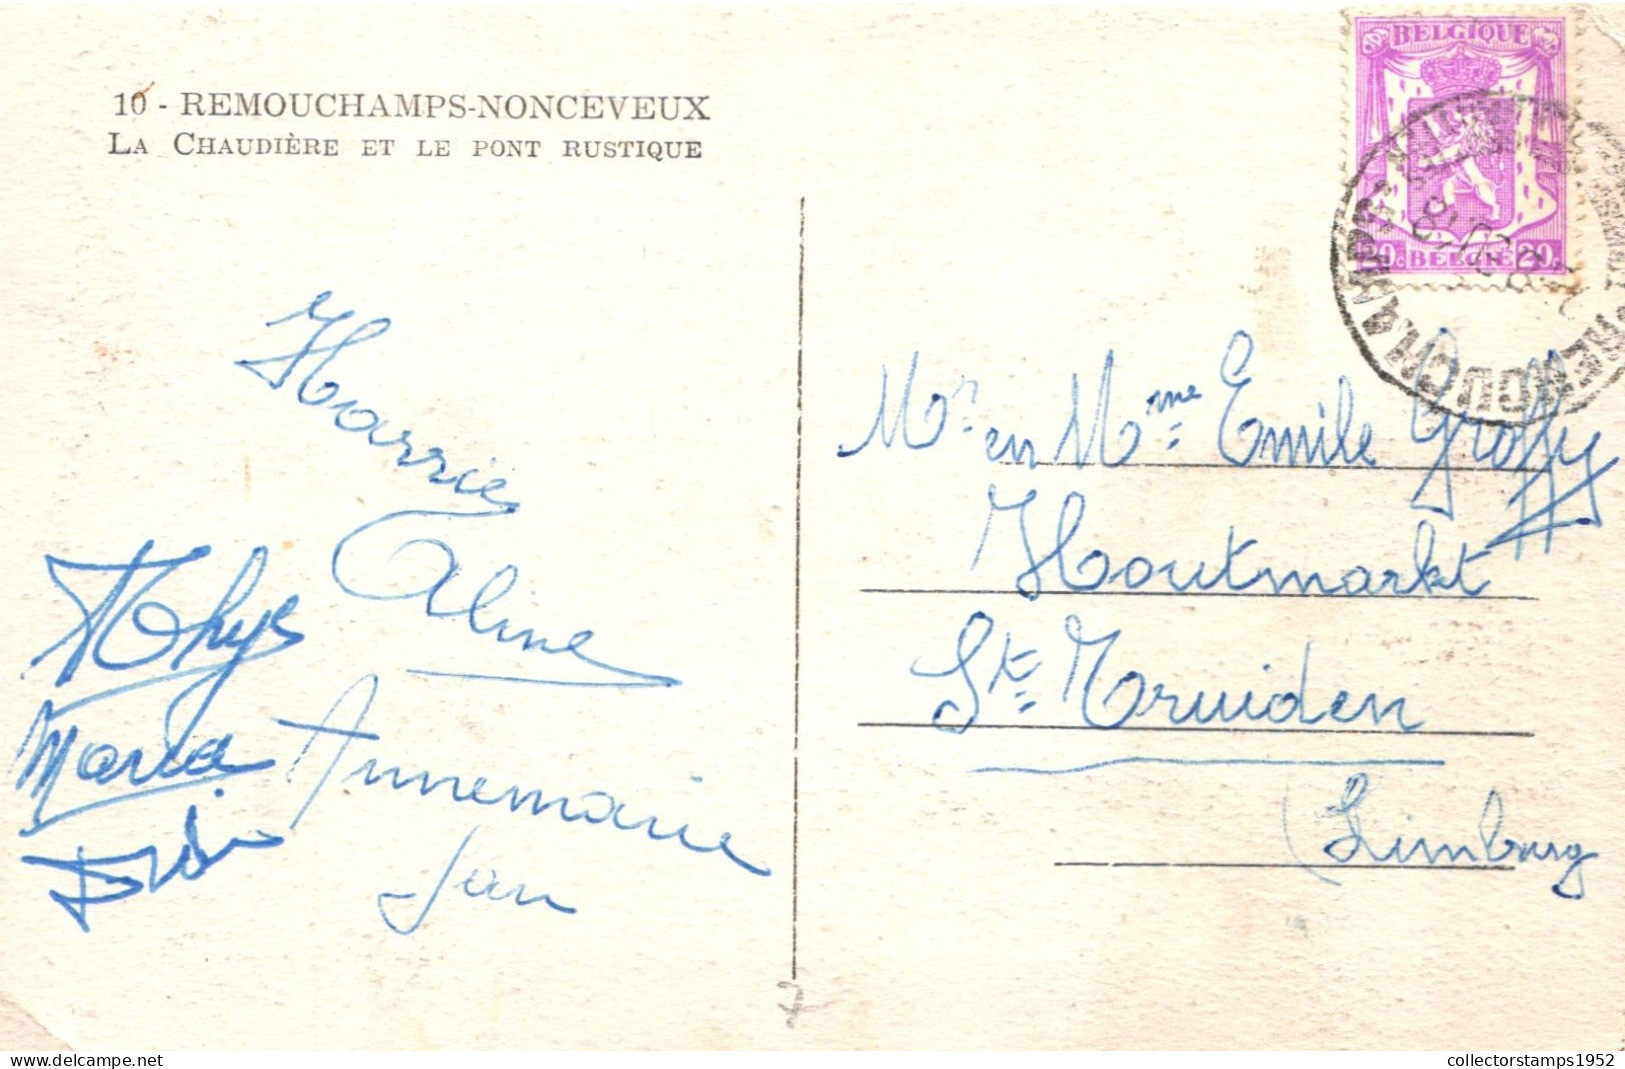 10 - REMOUCHAMPS-NONCEVEUX
LA CHAUDIÈRE ET LE PONT RUSTIQUE
BELGIQUE
20c BELGIË 20c
Harrie
Aline
Thys
Maria
Annemarie
Jan
Mr. en Mme Emile Groffy
Houtmarkt
St. Truiden
(Limburg
collectorstamps1952